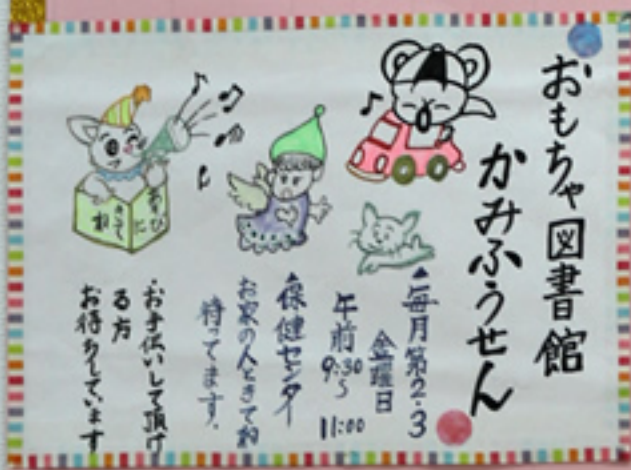 おもちゃ図書館
かみふうせん
▲毎月第2・3
金曜日
午前9:30
〜
11:00
▲保健センター
お家の人ときてね
待ってます。
・お手伝いして頂け
る方
お待ちしています
あそび
に
きてネ